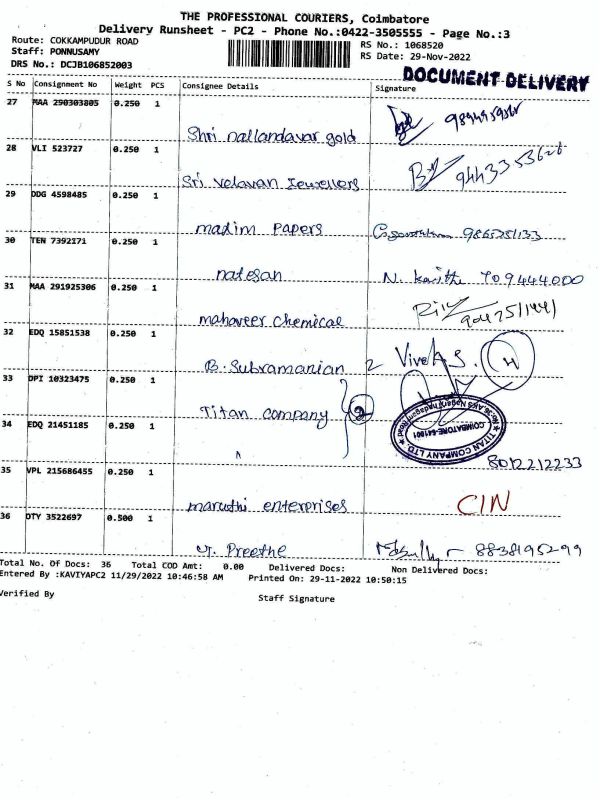 THE PROFESSIONAL COURIERS, Coimbatore
Delivery Runsheet - PC2 - Phone No.:0422-3505555 - Page No.:3
Route: COKKAMPUDUR ROAD
RS No.: 1068520
Staff: PONNUSAMY
RS Date: 29-Nov-2022
DRS No.: DCJB106852003
DOCUMENT DELIVERY
S No Consignment No Weight PCS Consignee Details Signature
27 MAA 290303805 0.250 1
Shri nallandavar gold
28 VLI 523727 0.250 1
Sri Velavan Jewellers 9443353626
29 DDG 4598485 0.250 1
madim Papers 9865251133
30 TEN 7392171 0.250 1
natesan N. 709444000
31 MAA 291925306 0.250 1
mahaveer chemical
32 EDQ 15851538 0.250 1
B. Subramanian 2 Vivek A S. H
33 DPI 10323475 0.250 1
Titan company 2
34 EDQ 21451185 0.250 1
★ TITAN COMPANY LTD. ★
No.36, AKS Nagar, Thadagam Road
COIMBATORE-641001
8012212233
35 VPL 215686455 0.250 1
maruthi enterprises CIN
36 DTY 3522697 0.500 1
Preethe 8838195299
Total No. Of Docs: 36 Total COD Amt: 0.00 Delivered Docs: Non Delivered Docs:
Entered By :KAVIYAPC2 11/29/2022 10:46:58 AM Printed On: 29-11-2022 10:50:15
Verified By
Staff Signature